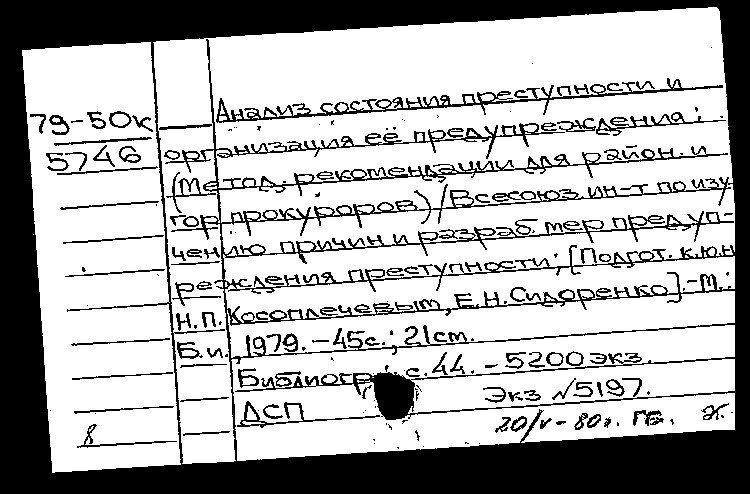 79-50к
5746
Анализ состояния преступности и
организация её предупреждения:
(Метод. рекомендации для район. и
гор прокуроров)/Всесоюз. ин-т по изу
чению причин и разраб мер предуп-
реждения преступности; [Подгот. к.ю.н
Н.П. Косоплечевым, Е.Н. Сидоренко].-М.:
Б.и., 1979. -45с.; 21см.
Библиогр.: с.44. -5200экз.
ДСП Экз №5197.
8 20/V-80г. ГБ. Ж.